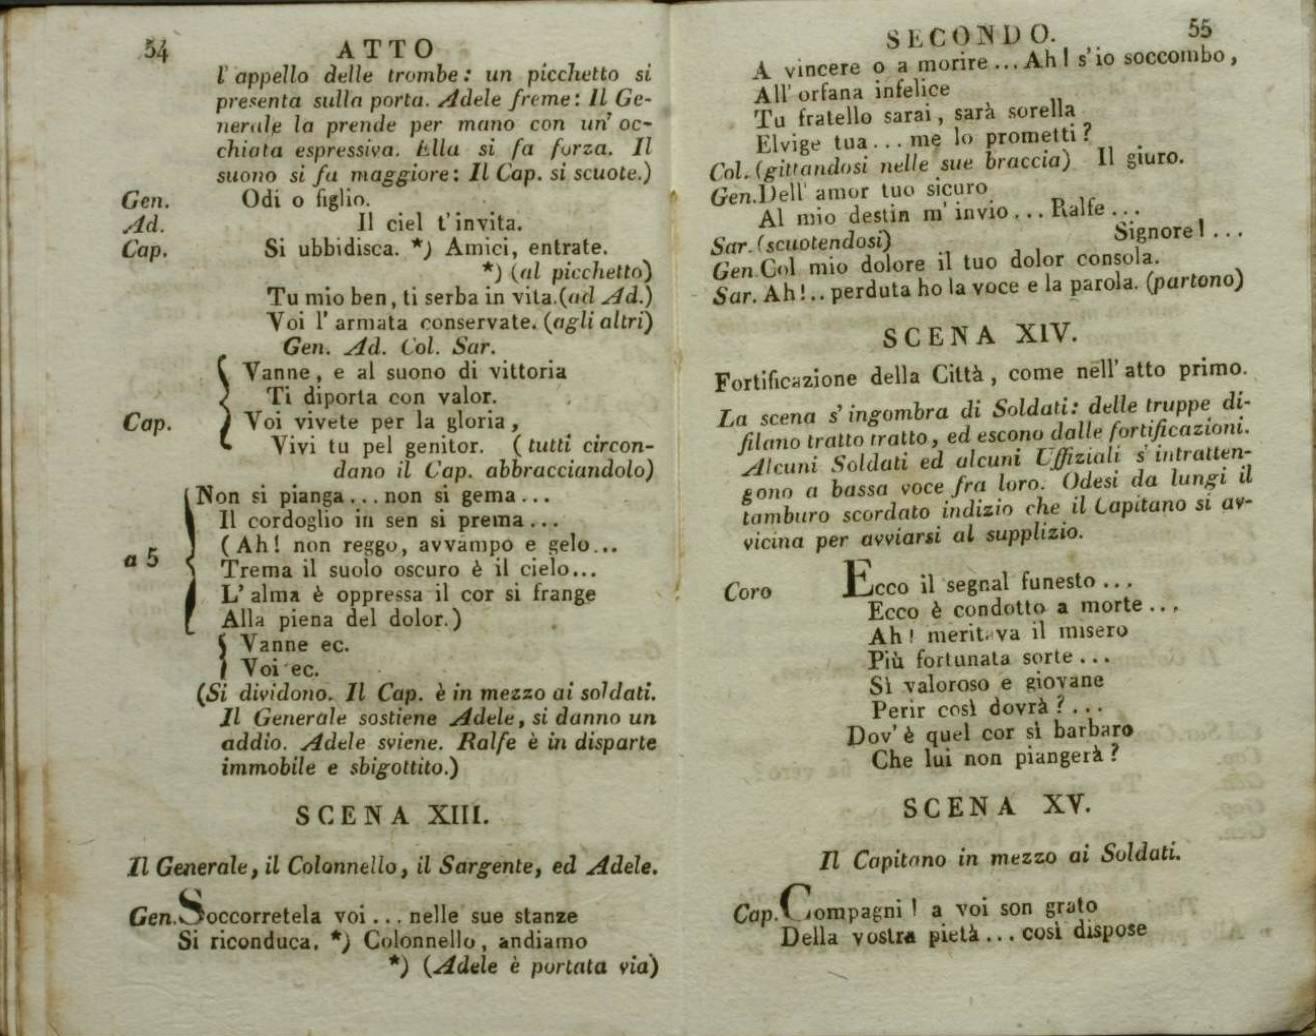 54 ATTO
l'appello delle trombe: un picchetto si
presenta sulla porta. Adele freme: Il Ge-
nerale la prende per mano con un' oc-
chiata espressiva. Ella si fa forza. Il
suono si fa maggiore: Il Cap. si scuote.)
Gen. Odi o figlio.
Ad. Il ciel t'invita.
Cap. Si ubbidisca. *) Amici, entrate.
*) (al picchetto)
Tu mio ben, ti serba in vita.(ad Ad.)
Voi l'armata conservate. (agli altri)
Gen. Ad. Col. Sar.
Vanne, e al suono di vittoria
Ti diporta con valor.
Cap. Voi vivete per la gloria,
Vivi tu pel genitor. (tutti circon-
dano il Cap. abbracciandolo)
Non si pianga...non si gema...
Il cordoglio in sen si prema...
(Ah! non reggo, avvampo e gelo...
a 5 Trema il suolo oscuro è il cielo...
L'alma è oppressa il cor si frange
Alla piena del dolor.)
Vanne ec.
Voi ec.
(Si dividono. Il Cap. è in mezzo ai soldati.
Il Generale sostiene Adele, si danno un
addio. Adele sviene. Ralfe è in disparte
immobile e sbigottito.)
SCENA XIII.
Il Generale, il Colonnello, il Sargente, ed Adele.
Gen. Soccorretela voi...nelle sue stanze
Si riconduca. *) Colonnello, andiamo
*) (Adele è portata via)
SECONDO. 55
A vincere o a morire...Ah! s'io soccombo,
All'orfana infelice
Tu fratello sarai, sarà sorella
Elvige tua...me lo prometti?
Col. (gittandosi nelle sue braccia) Il giuro.
Gen. Dell'amor tuo sicuro
Al mio destin m'invio...Ralfe...
Sar. (scuotendosi) Signore!...
Gen. Col mio dolore il tuo dolor consola.
Sar. Ah!..perduta ho la voce e la parola. (partono)
SCENA XIV.
Fortificazione della Città, come nell'atto primo.
La scena s'ingombra di Soldati: delle truppe di-
filano tratto tratto, ed escono dalle fortificazioni.
Alcuni Soldati ed alcuni Uffiziali s'intratten-
gono a bassa voce fra loro. Odesi da lungi il
tamburo scordato indizio che il Capitano si av-
vicina per avviarsi al supplizio.
Coro Ecco il segnal funesto...
Ecco è condotto a morte...
Ah! meritava il misero
Più fortunata sorte...
Sì valoroso e giovane
Perir così dovrà?...
Dov'è quel cor sì barbaro
Che lui non piangerà?
SCENA XV.
Il Capitano in mezzo ai Soldati.
Cap. Compagni! a voi son grato
Della vostra pietà...così dispose